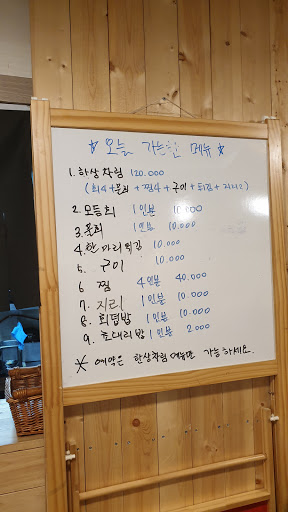 ☆ 오늘 가능한 메뉴 ☆
1. 한상차림 120.000
(회4+물회+찜4+구이+튀김+지리2)
2. 모듬회 1인분 10.000
3. 물회 1인분 10.000
4. 한마리튀김 10.000
5. 구이 10.000
6 찜 4인분 40.000
7. 지리 1인분 10.000
8. 회덮밥 1인분 10.000
9. 초대리밥 1인분 2.000
* 예약은 한상차림 메뉴만 가능하세요.